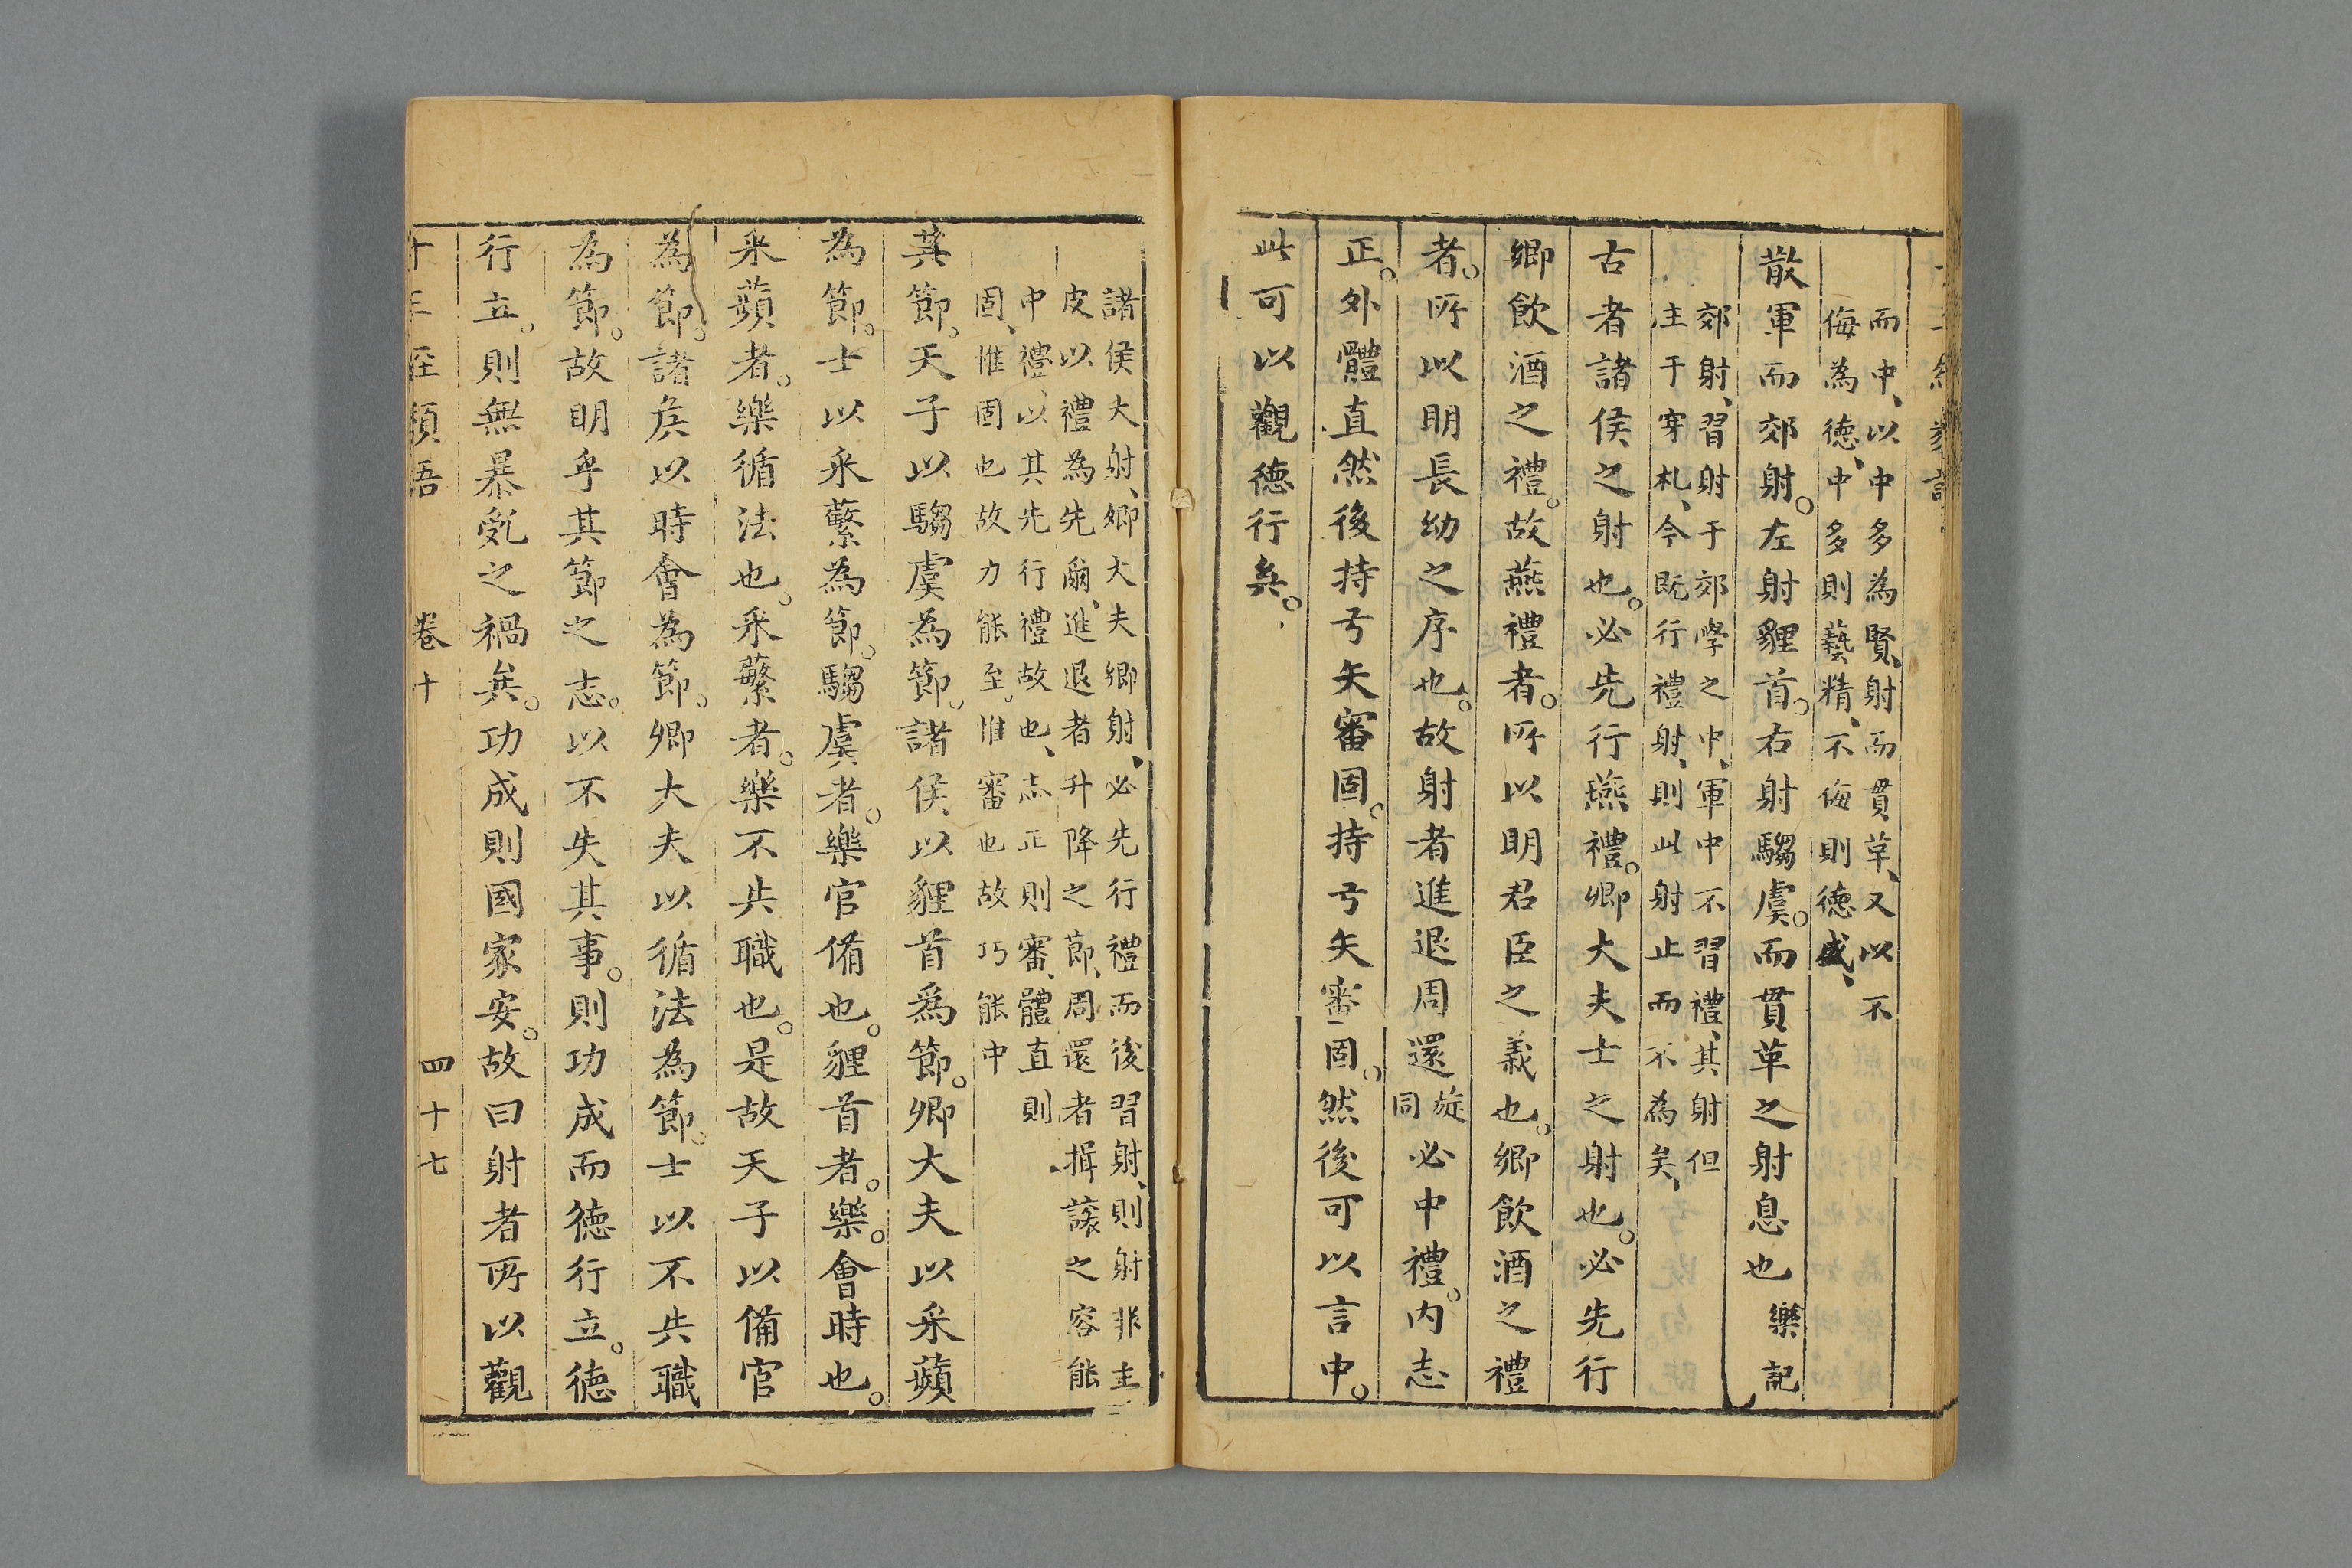 而中、以中多為賢、射而貫革、又以不
侮為德、中多則藝精、不侮則德盛、
散軍而郊射。左射貍首。右射騶虞。而貫革之射息也樂記
郊射、習射于郊學之中、軍中不習禮、其射但
主于穿札、今既行禮射、則此射止而不為矣、
古者諸侯之射也。必先行燕禮。卿大夫士之射也。必先行
鄉飲酒之禮。故燕禮者。所以明君臣之義也。鄉飲酒之禮
者。所以明長幼之序也。故射者進退周還旋同必中禮。内志
正。外體直然後持弓矢審固。持弓矢審固。然後可以言中。
此可以觀德行矣。
諸侯大射、鄉大夫鄉射、必先行禮而後習射、則射非主
皮以禮為先爾、進退者升降之節、周還者揖讓之容能
中禮、以其先行禮故也、志正則審、體直則
固、惟固也故力能至。惟審也故巧能中
其節。天子以騶虞為節。諸侯以貍首爲節。卿大夫以采蘋
為節。士以采蘩為節。騶虞者。樂官備也。貍首者。樂。會時也。
采蘋者。樂循法也。采蘩者。樂不失職也。是故天子以備官
為節。諸矦以時會為節。卿大夫以循法為節。士以不失職
為節。故明乎其節之志。以不失其事。則功成而德行立。德
行立。則無暴亂之禍矣。功成則國家安。故曰射者所以觀
十三經類語 卷十 四十七